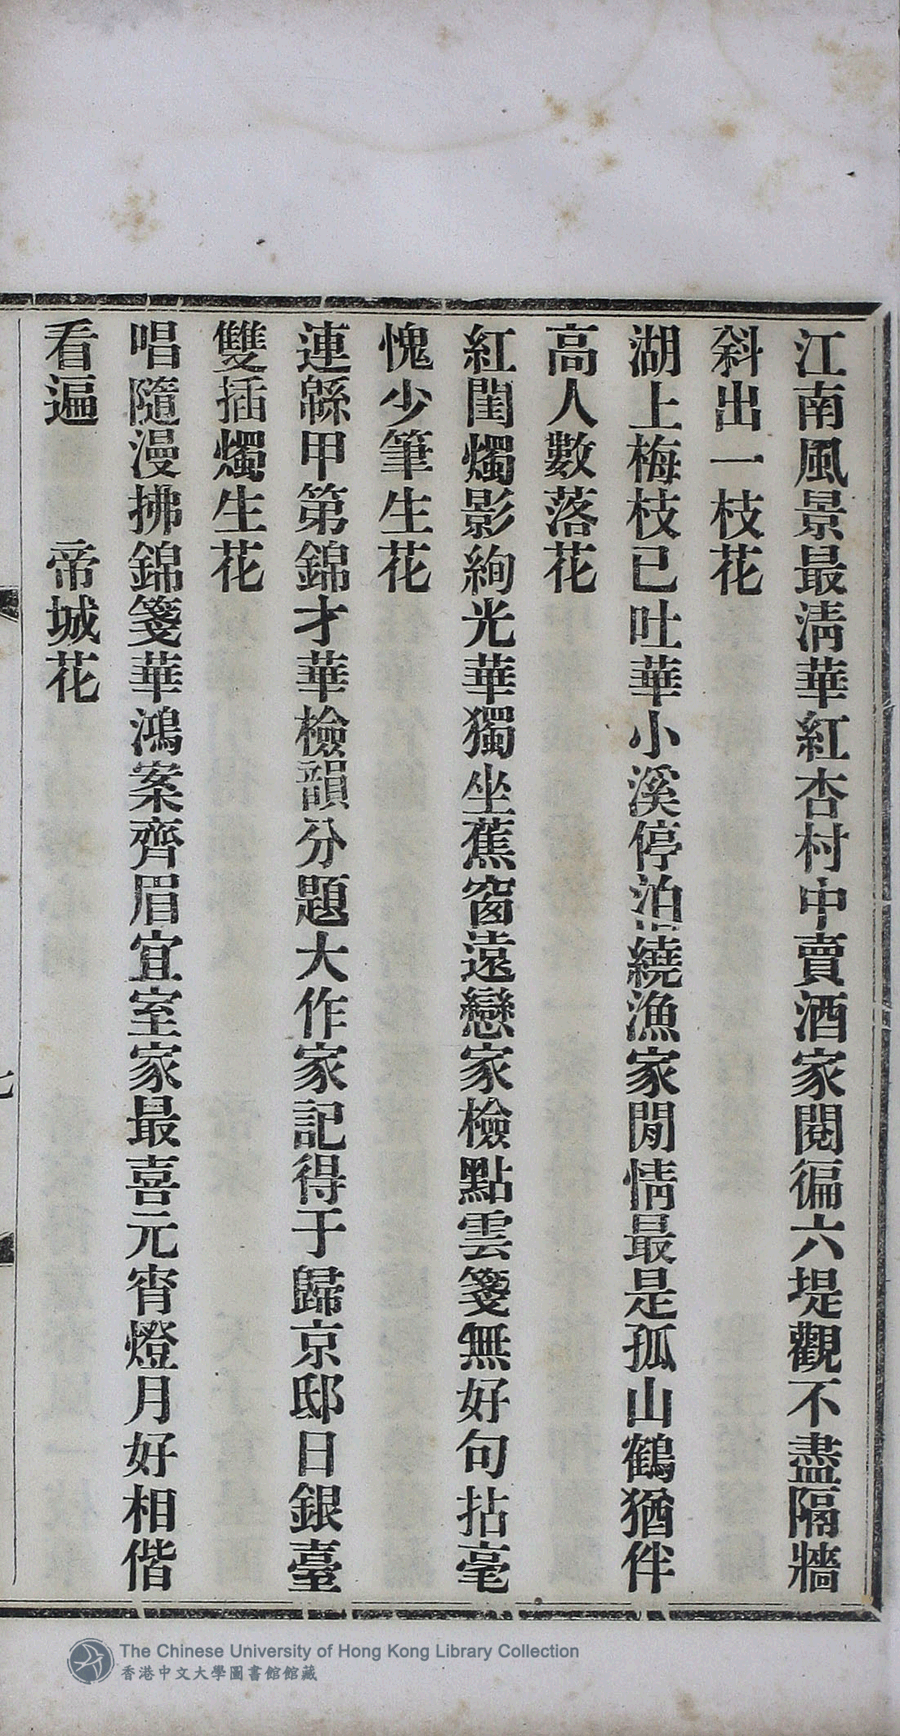 江南風景最淸華紅杏村中賣酒家閱徧六堤觀不盡隔牆
斜出一枝花
湖上梅枝已吐華小溪停泊繞漁家閒情最是孤山鶴猶伴
高人數落花
紅閨燭影絢光華獨坐蕉窗遠戀家檢點雲箋無好句拈毫
愧少筆生花
連緜甲第錦才華檢韻分題大作家記得于歸京邸日銀臺
雙插燭生花
唱隨漫拂錦箋華鴻案齊眉宜室家最喜元宵燈月好相偕
看遍　帝城花
The Chinese University of Hong Kong Library Collection
香港中文大學圖書館館藏